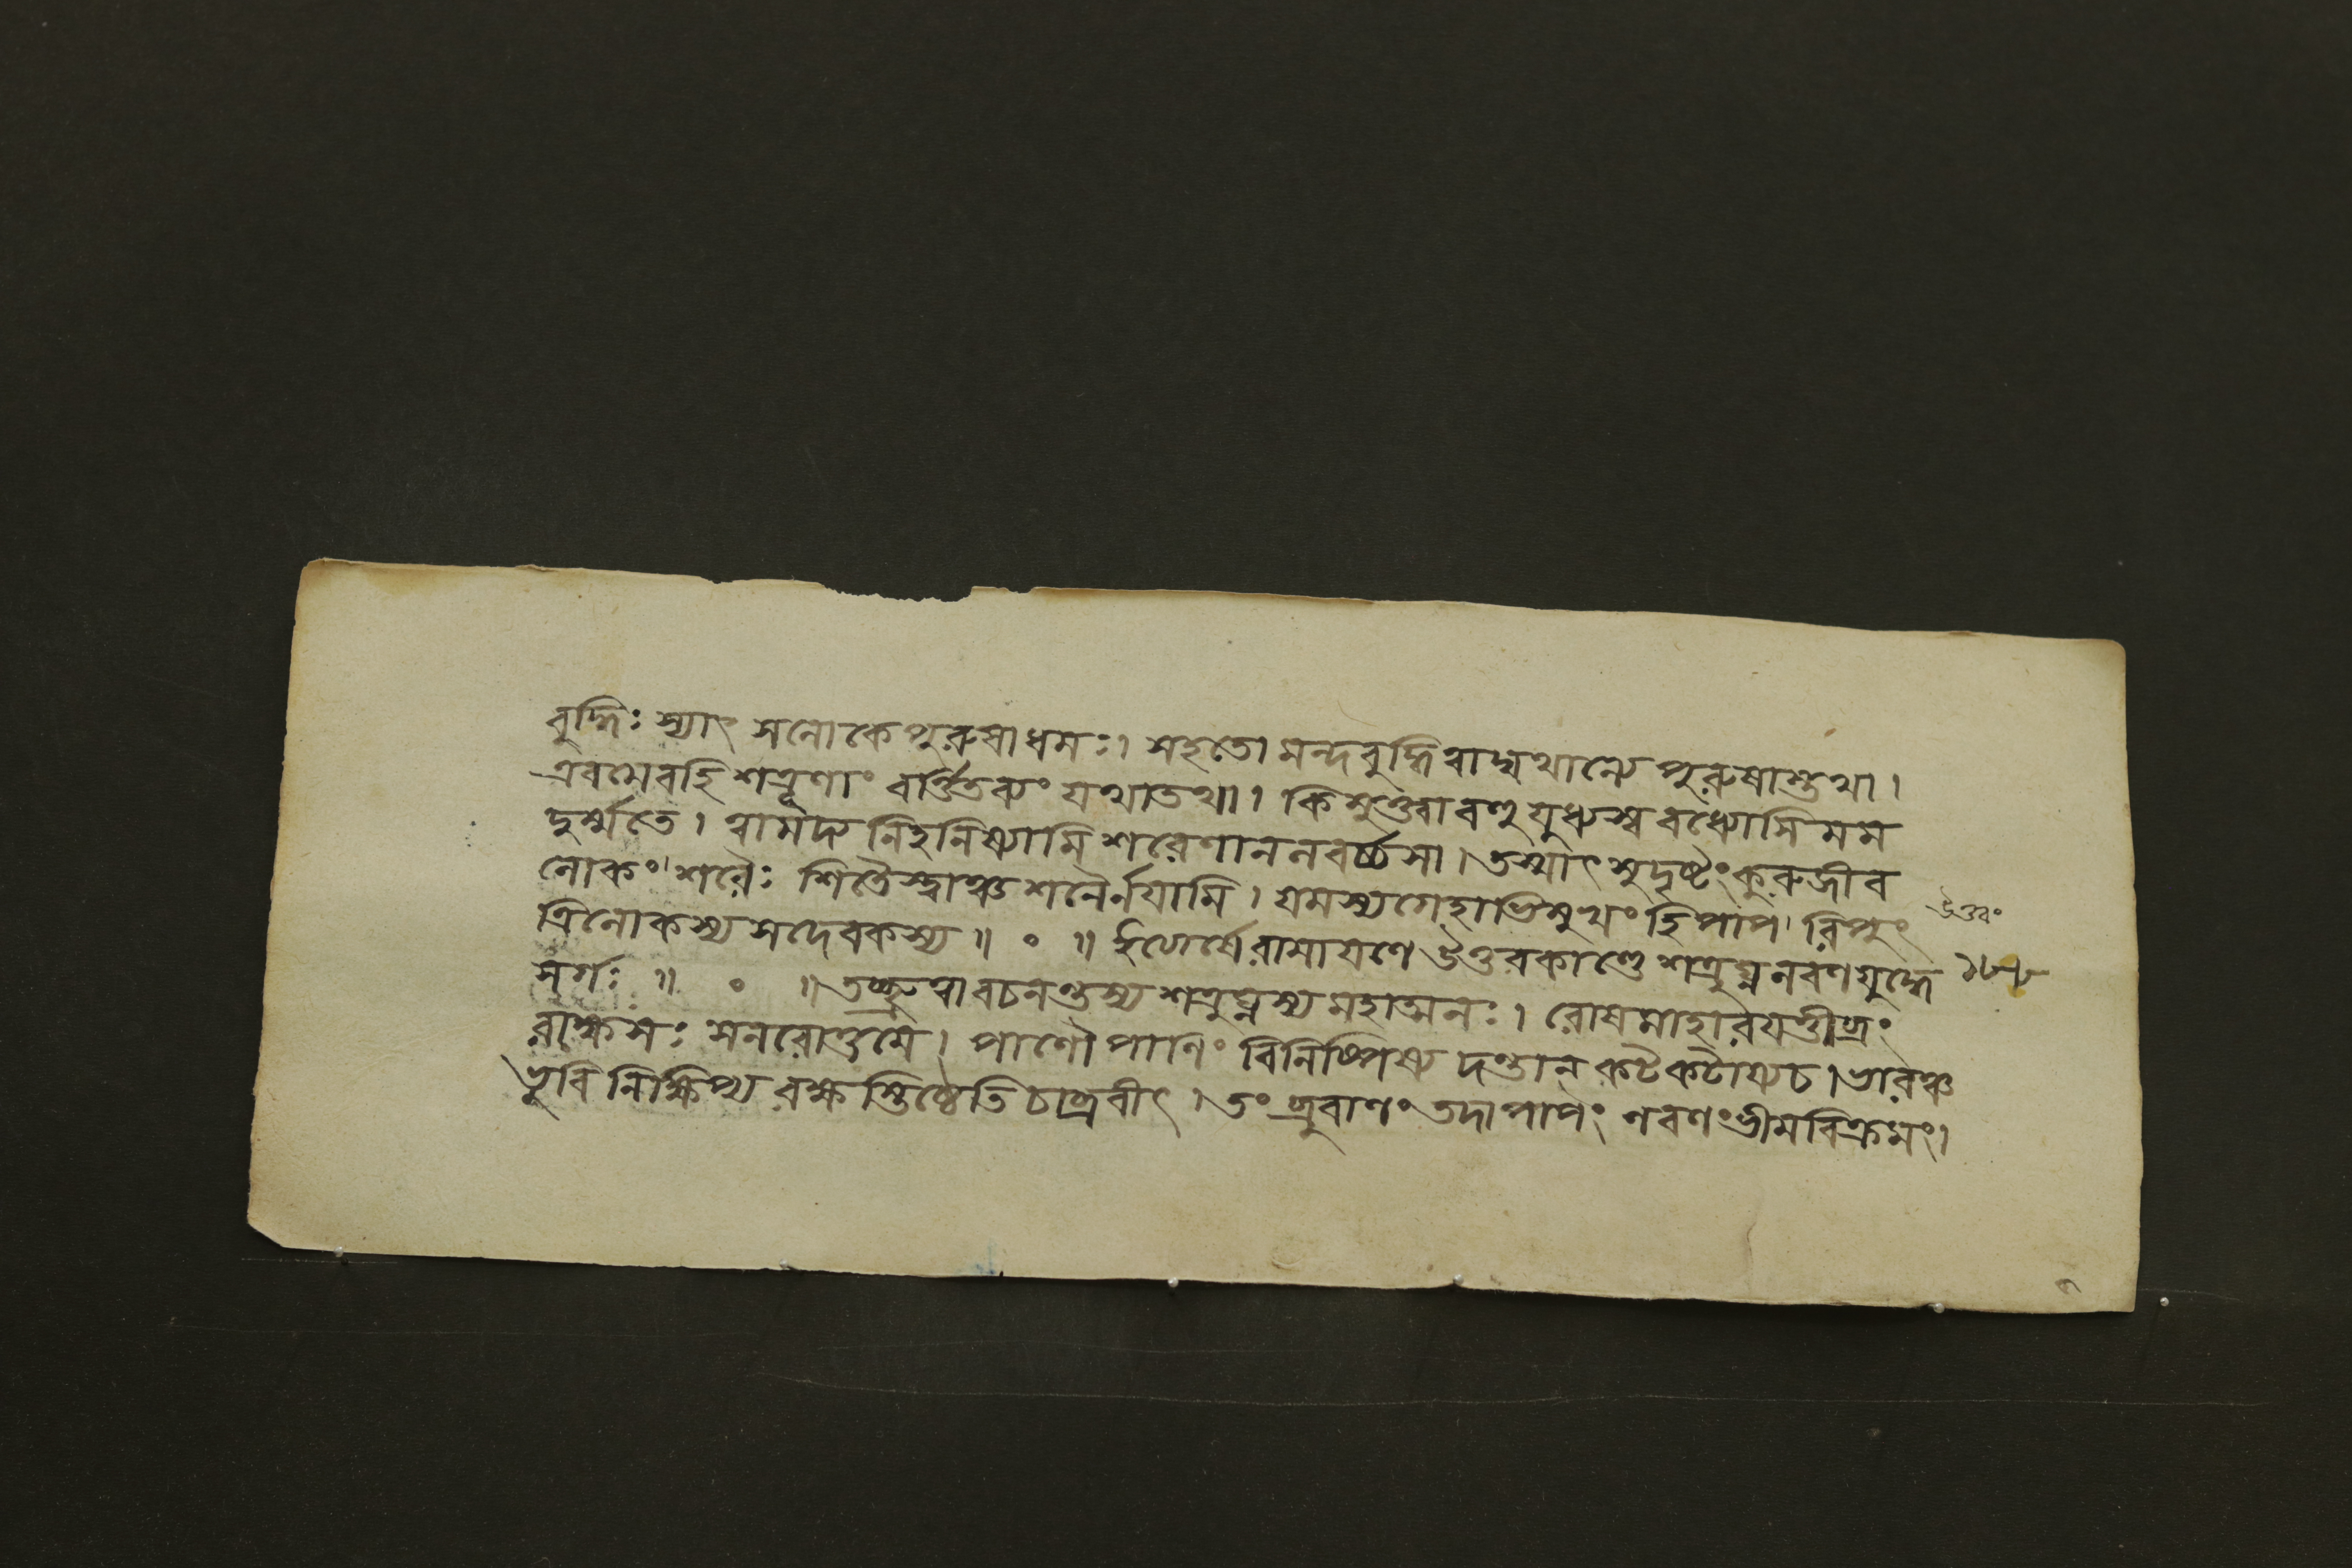 বুদ্ধিঃ স্যাৎ সলোকে পুরুষাধমঃ। সহতো মন্দবুদ্ধিত্বাদ্যথান্যে পুরুষাস্তথা।
এবমেবহি শত্রূণাং বর্ত্তিতব্যং যথাতথা। কিমুক্ত্বা বহু যুধ্যস্ব বধ্যোসি মম
দুর্ম্মতে। ত্বামদ্য নিহনিষ্যামি শরেণানলবর্চ্চসা। তস্মাৎ সুদৃষ্টং কুরু জীব
লোকং শরৈঃ শিতৈস্ত্বাঞ্চ শনৈর্নয়ামি। যমস্য গেহাভিমুখং হি পাপ রিপুং
ত্রিলোকস্য সদেবকস্য॥ ০ ॥ ইত্যার্ষে রামায়ণে উত্তরকাণ্ডে শত্রুঘ্নলবণযুদ্ধে
সর্গঃ॥ ০ ॥ তচ্ছ্রুত্বা বচনন্তস্য শত্রুঘ্নস্য মহাত্মনঃ। রোষমাহারযত্তীব্রং
রাক্ষসঃ সনরোত্তমে। পাণৌ পাণিং বিনিষ্পিষ্য দন্তান কটকটায্যচ। ভারঞ্চ
ভুবি নিক্ষিপ্য বক্ষস্তিষ্ঠেতি চাব্রবীৎ। তং ব্রুবাণং তদা পাপং লবণং ভীমবিক্রমং।
উত্তরং
১৮৮